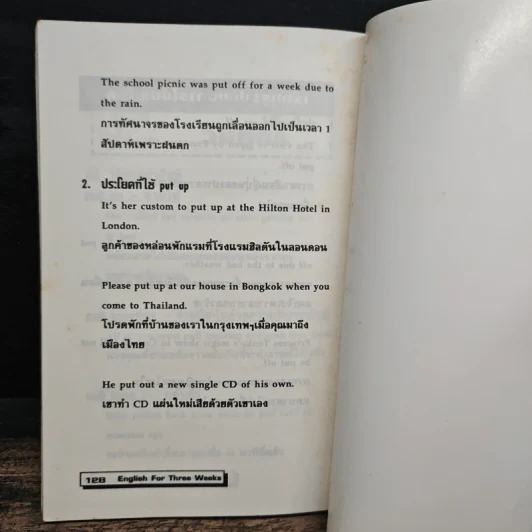 The school picnic was put off for a week due to
the rain.
การทัศนาจรของโรงเรียนถูกเลื่อนออกไปเป็นเวลา 1
สัปดาห์เพราะฝนตก
2. ประโยคที่ใช้ put up
It's her custom to put up at the Hilton Hotel in
London.
ลูกค้าของหล่อนพักแรมที่โรงแรมฮิลตันในลอนดอน
Please put up at our house in Bongkok when you
come to Thailand.
โปรดพักที่บ้านของเราในกรุงเทพฯเมื่อคุณมาถึง
เมืองไทย
He put out a new single CD of his own.
เขาทำ CD แผ่นใหม่เสียด้วยตัวเขาเอง
128 English For Three Weeks